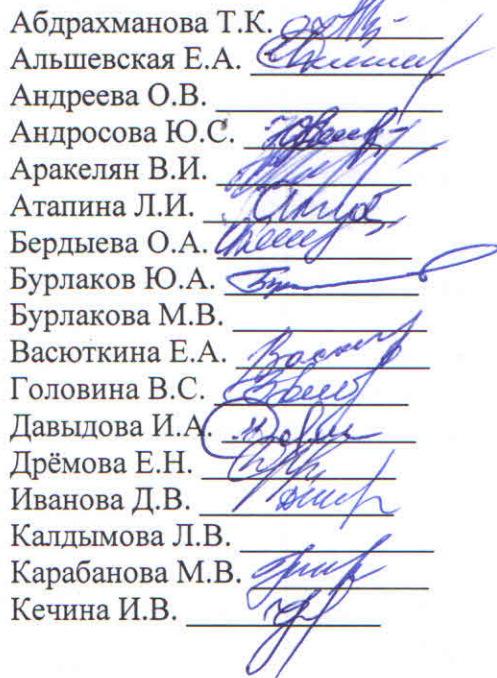 Абдрахманова Т.К.
Альшевская Е.А.
Андреева О.В.
Андросова Ю.С.
Аракелян В.И.
Атапина Л.И.
Бердыева О.А.
Бурлаков Ю.А.
Бурлакова М.В.
Васюткина Е.А.
Головина В.С.
Давыдова И.А.
Дрёмова Е.Н.
Иванова Д.В.
Калдымова Л.В.
Карабанова М.В.
Кечина И.В.